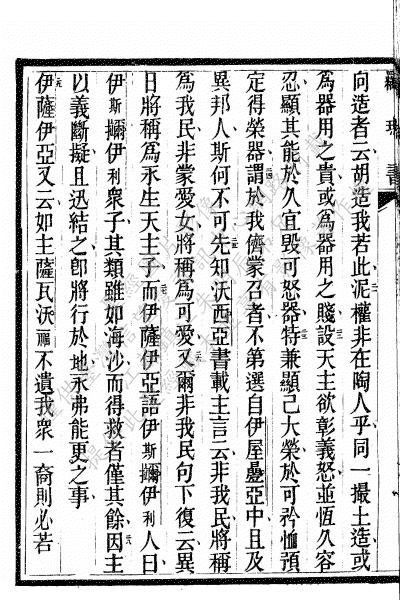 向造者云胡造我若此泥權非在陶人乎同一撮土造或
為器用之貴或為器用之賤設天主欲彰義怒並恆久容
忍顯其能於久宜毀可怒器特兼顯己大榮於可矜恤預
定得榮器謂於我儕蒙召者不第選自伊屋疊亞中且及
異邦人斯何不可先知沃西亞書載主言云非我民將稱
為我民非蒙愛女將稱為可愛又爾非我民句下復云異
日將稱為永生天主子而伊薩伊亞語伊斯擸伊利人曰
伊斯擸伊利衆子其類雖如海沙而得救者僅其餘因主
以義斷擬且迅結之卽將行於地永弗能更之事
伊薩伊亞又云如主薩瓦沃不遺我衆一裔則必若